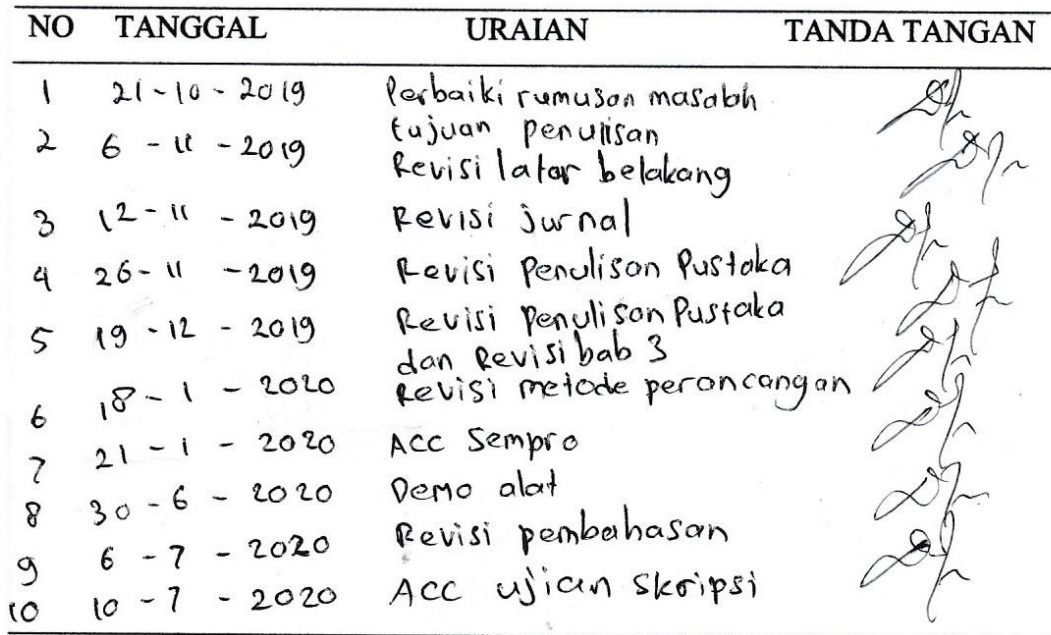 NO TANGGAL URAIAN TANDA TANGAN
1 21-10-2019 Perbaiki rumusan masalah
tujuan penulisan
2 6-11-2019 Revisi latar belakang
3 12-11-2019 Revisi jurnal
4 26-11-2019 Revisi Penulisan Pustaka
5 19-12-2019 Revisi Penulisan Pustaka
dan Revisi bab 3
6 18-1-2020 Revisi metode perancangan
7 21-1-2020 ACC Sempro
8 30-6-2020 Demo alat
9 6-7-2020 Revisi pembahasan
10 10-7-2020 ACC ujian skripsi